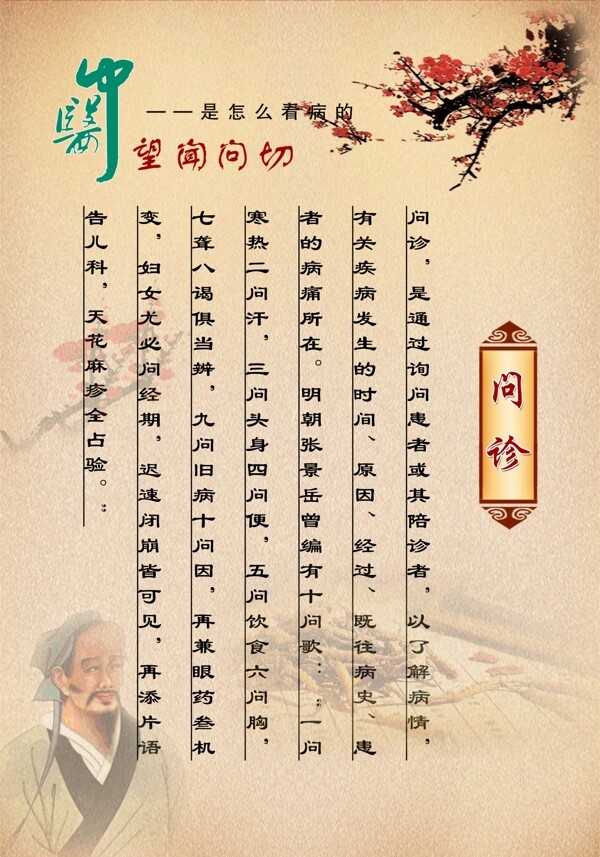 中醫
——是怎么看病的
望闻问切
问诊
问诊，是通过询问患者或其陪诊者，以了解病情，
有关疾病发生的时间、原因、经过、既往病史、患
者的病痛所在。明朝张景岳曾编有十问歌：“一问
寒热二问汗，三问头身四问便，五问饮食六问胸，
七聋八谒俱当辨，九问旧病十问因，再兼眼药叁机
变，妇女尤必问经期，迟速闭崩皆可见，再添片语
告儿科，天花麻疹全占验。”